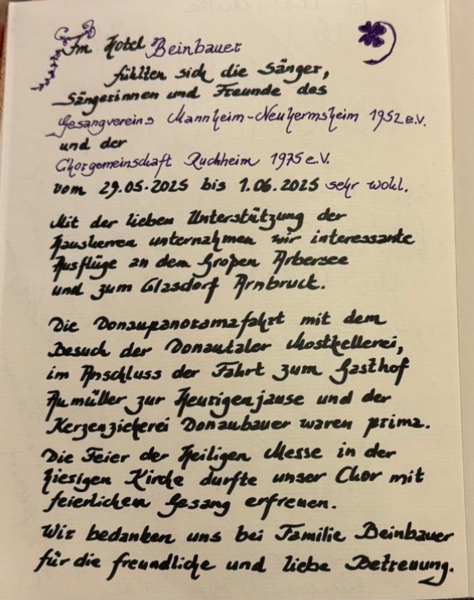 Im Hotel Beinbauer
fühlten sich die Sänger,
Sängerinnen und Freunde des
Gesangvereins Mannheim-Neuhermsheim 1952 e.V.
und der
Chorgemeinschaft Ruchheim 1975 e.V.
vom 29.05.2025 bis 1.06.2025 sehr wohl.
Mit der lieben Unterstützung der
Hausherren unternahmen wir interessante
Ausflüge an dem Großen Arbersee
und zum Glasdorf Arnbruck.
Die Donaupanoramafahrt mit dem
Besuch der Donautaler Mostkellerei,
im Anschluss der Fahrt zum Gasthof
Aumüller zur Heurigenjause und der
Kerzenzieherei Donaubauer waren prima.
Die Feier der Heiligen Messe in der
hiesigen Kirche durfte unser Chor mit
feierlichem Gesang erfreuen.
Wir bedanken uns bei Familie Beinbauer
für die freundliche und liebe Betreuung.